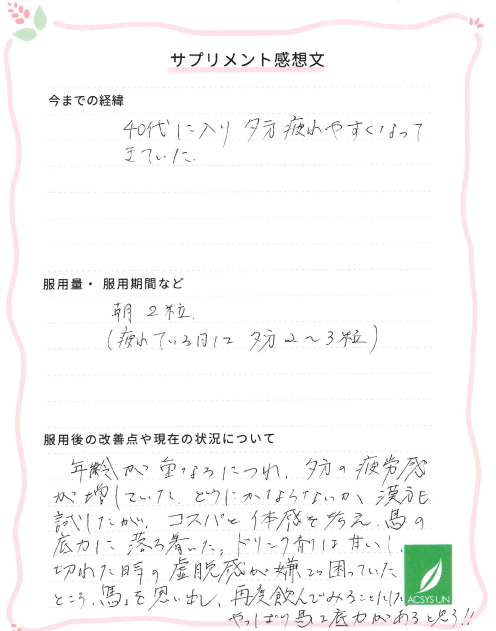 サプリメント感想文
今までの経緯
40代に入り 夕方 疲れやすくなって
きていた。
服用量・服用期間など
朝 2粒.
(疲れている日は 夕方 2〜3粒)
服用後の改善点や現在の状況について
年齢が重なるにつれ、夕方の疲労感
が増していた。どうにかならないか、漢方も
試したが、コスパと体感を考え、馬の
底力に落ち着いた。ドリンク剤は甘いし、
切れた時の虚脱感が嫌で困っていた
ところ、馬を思い出し、再度飲んでみることにした
やっぱり馬は底力があると思う!!
ACSYS UN